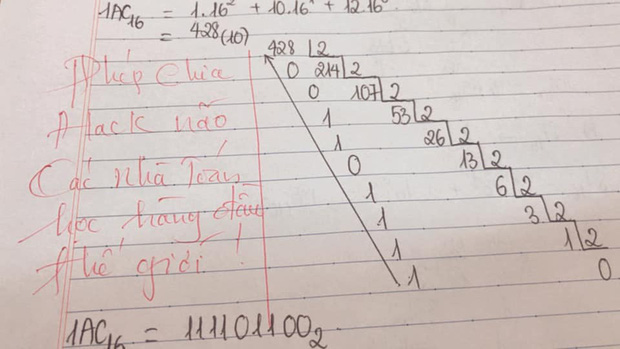 1AC₁₆ = 1.16² + 10.16 + 12.16
= 428(10)
428 2
0 214 2
0 107 2
1 53 2
1 26 2
0 13 2
1 6 2
1 3 2
1 1 2
1 0
Phép chia
Hack não
Các nhà Toán
học hàng đầu
thế giới !
1AC₁₆ = 111101100₂